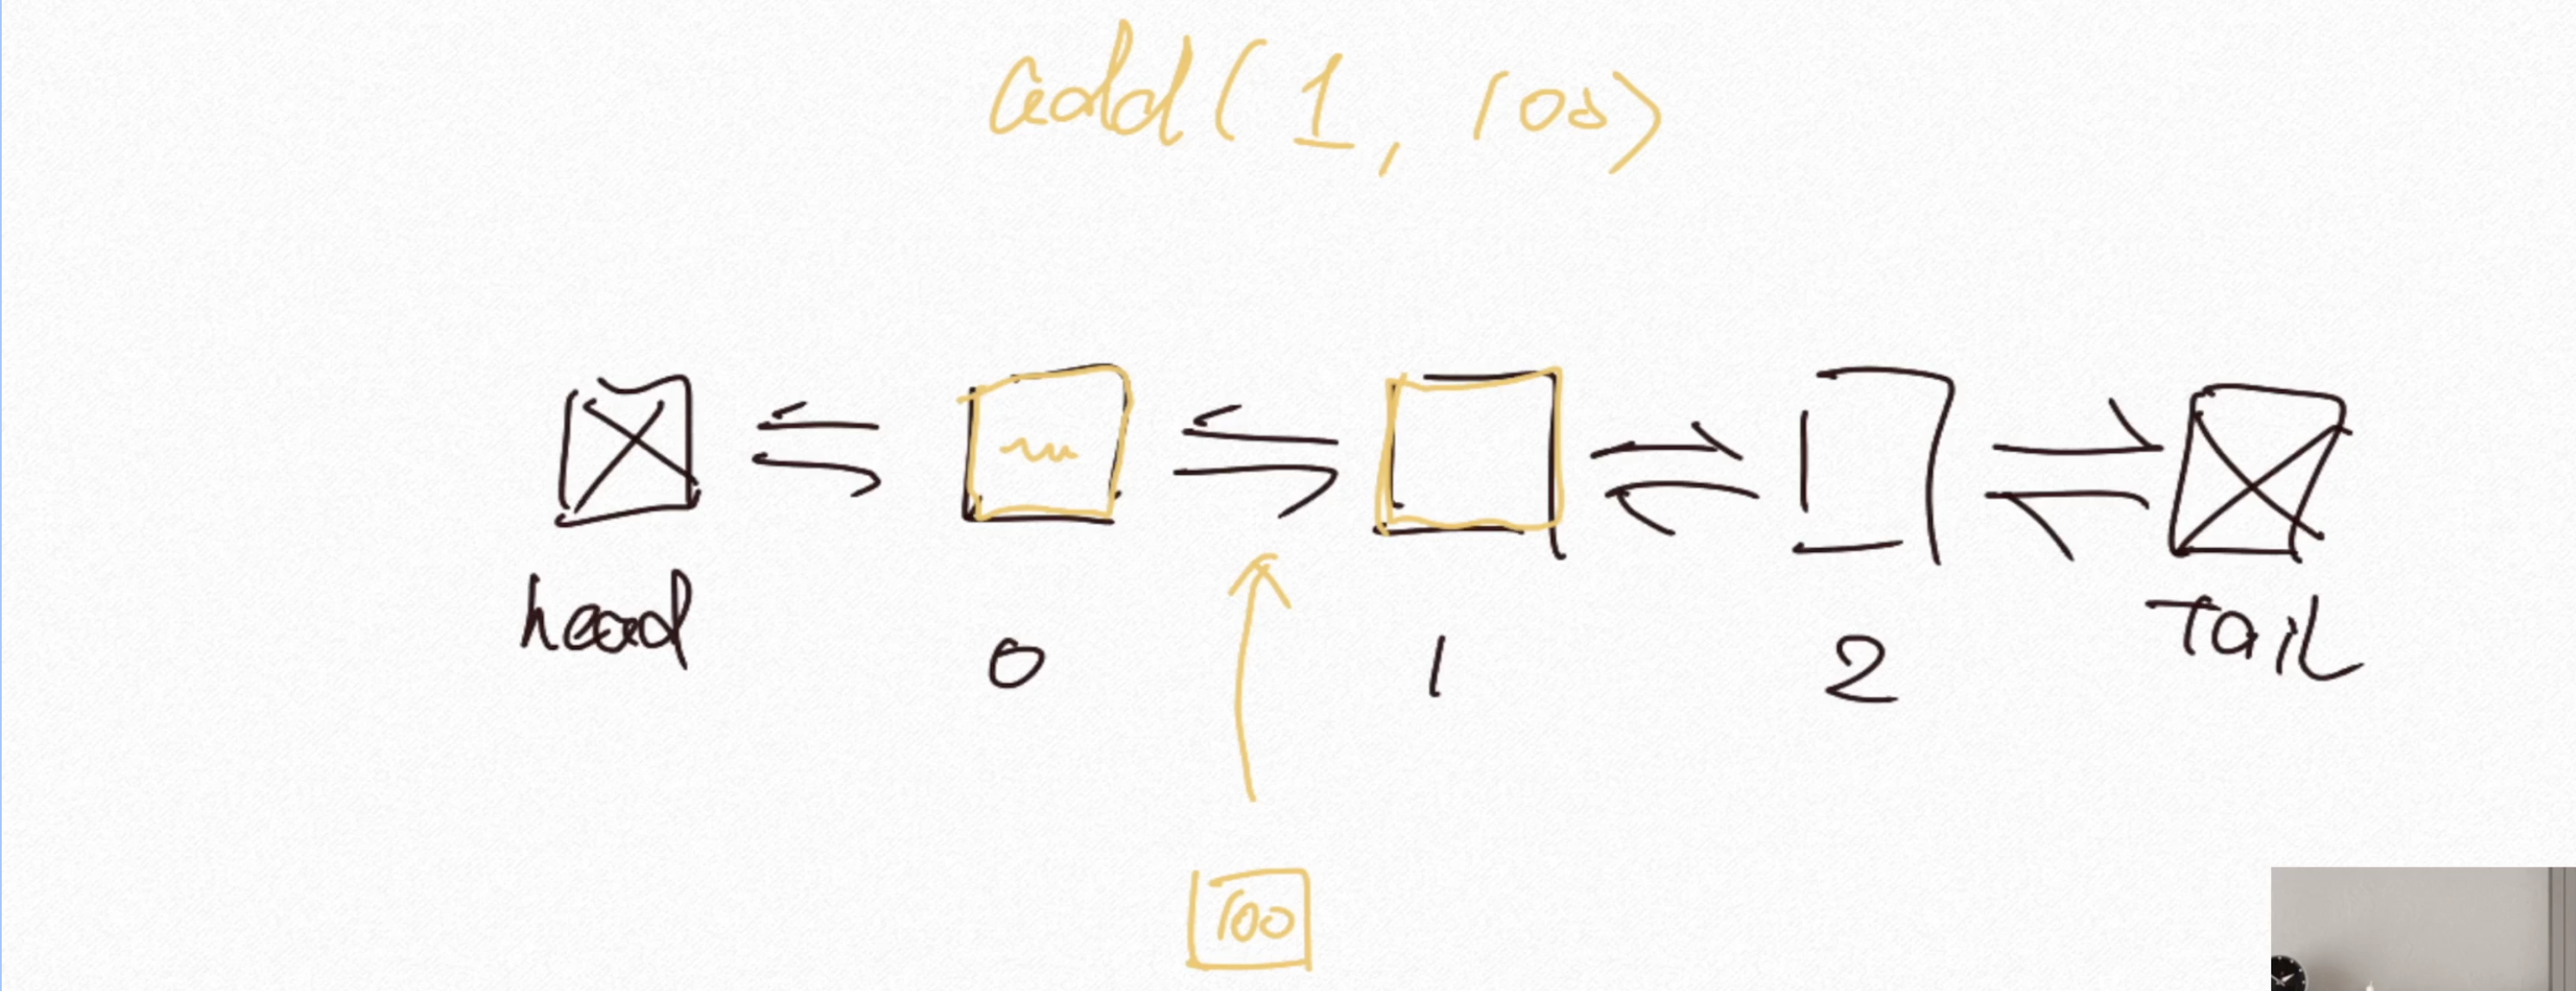 add(1, 100)
head 0 1 2 Tail
100